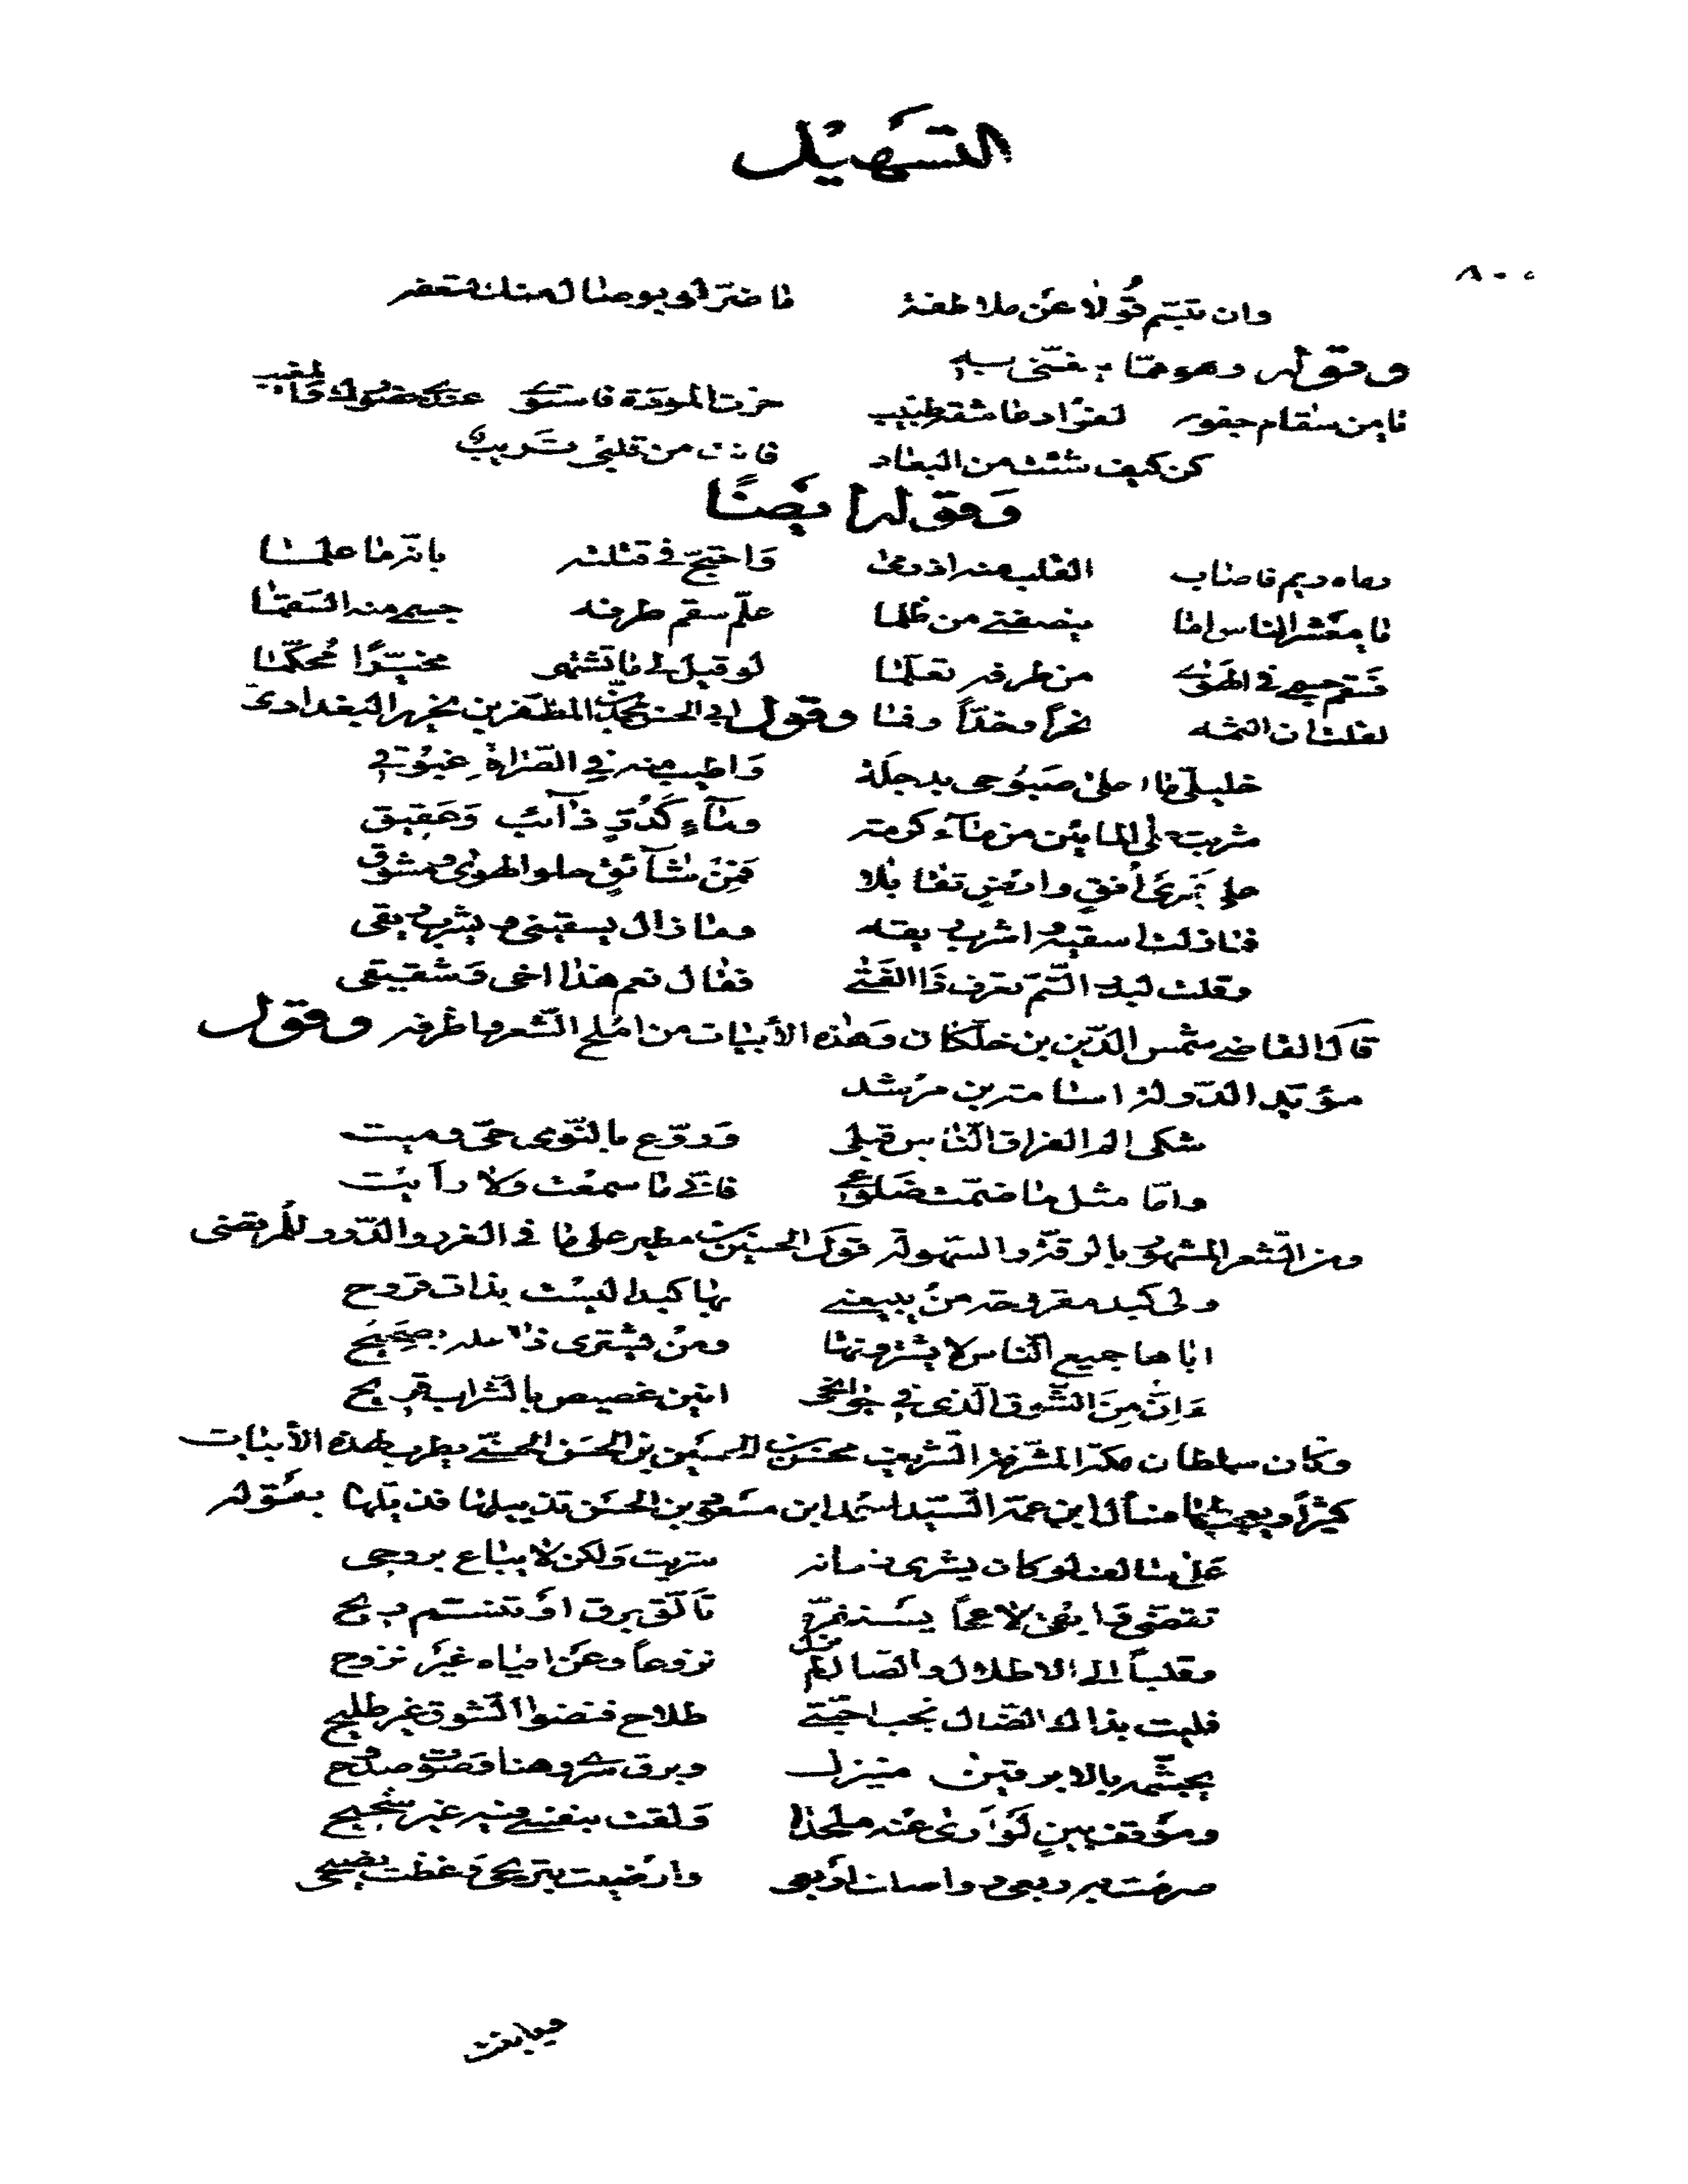 التسهيل
٨٠٠
وان تبسم قولا عن ملاطفة ما ضر لو بوصال منك تسعفه
وقوله وهو مما يغنى به
يا من سقام جفونه لفؤاد عاشقه طبيب حزت المودة فاستوى عندي حضورك والمغيب
كن كيف شئت من البعاد فانت من قلبي قريب
وقوله ايضًا
رماه ريم فاصاب القلب منه اذ رمى واحتج في قتلته بانه ما علما
يا معشر الناس اما ينصفني من ظلما علم سقم طرفه جسمي منه السقما
فسقم جسمي في الهوى من طرفه تعلما لو قيل لي ما تشتهي مخيرًا محكّما
لقلت ان الثمه نحراً وخداً وفما وقول ابي الحسن محمد بن المظفر بن نحرير البغدادي
خليلي ما احلى صبوحي بدجلة واطيب منه في الصراة غبوقي
شربت على المائين من ماء كرمة وماءٍ كدُرّ ذائب وعقيق
على قمري أفق وارض تقابلا فمن شائق حلو الهوى ومشوق
فما زلت اسقيه واشرب ريقه وما زال يسقيني ويشرب ريقي
وقلت لبدر التم تعرف ذا الفتى فقال نعم هذا اخي وشقيقي
قال القاضي شمس الدين بن خلكان وهذه الأبيات من املح الشعر واظرفه وقول
مؤيد الدولة اسامة بن مرشد
شكى الم الفراق الناس قبلي وروّع بالنوى حيّ وميت
واما مثل ما ضمت ضلوعي فاني ما سمعت ولا رأيت
ومن الشعر المشهور بالرقة والسهولة قول الحسين بن مطير على ما في الغرر والدرر للمرتضى
ولي كبد مقروحة من يبيعني بها كبدا ليست بذات قروح
اباها جميع الناس لا يشترونها ومن يشتري ذا علة بصحيح
وانّ من الشوق الذي في جوانحي انين غصيص بالشراب قريح
وكان سلطان مكة المشرفة الشريف محسن بن الحسين بن الحسن الحسني يطرب لهذه الأبيات
كثيراً ويعجب بها فسأل ابن عمه السيد احمد ابن مسعود بن الحسن تذييلها فذيلها بقوله
على سالف لو كان يشرى زمانه شريت ولكن لا يباع بروحي
تقضى وابقى لاعجاً يستفزه تألق برق او تنسم ريح
وقلباً الى الاطلال والضال لم يزل نزوعاً وعن افياه غير نزوح
فليت بذاك الضال نجب احبتي طلاح فنضو الشوق غير طليح
يجشمه بالابرقين منيزل وبرق سرى وهنا وصوت صدوح
وموقف بينٍ لو أرى عنه ملحدا ولقت بنفسي فيه غير شحيح
صرمت به ربعي وواصلت اربعي وارضيت تبريحي وغظت نصيحي